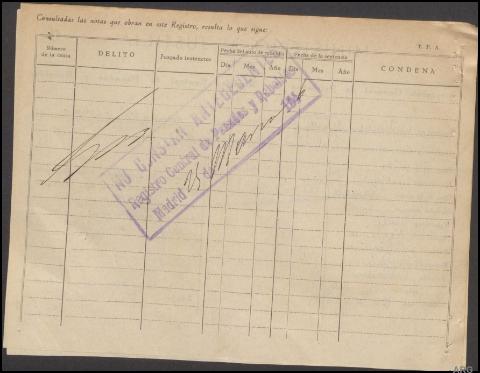 Consultadas las notas que obran en este Registro, resulta lo que sigue:
T. P. A.
Número de la causa
DELITO
Juzgado instructor
Fecha del auto de rebeldía
Día
Mes
Año
Fecha de la sentencia
Día
Mes
Año
CONDENA
NO CONSTAN ANTECEDENTES
Registro Central de Penados y Rebeldes
Madrid de 194
ARG